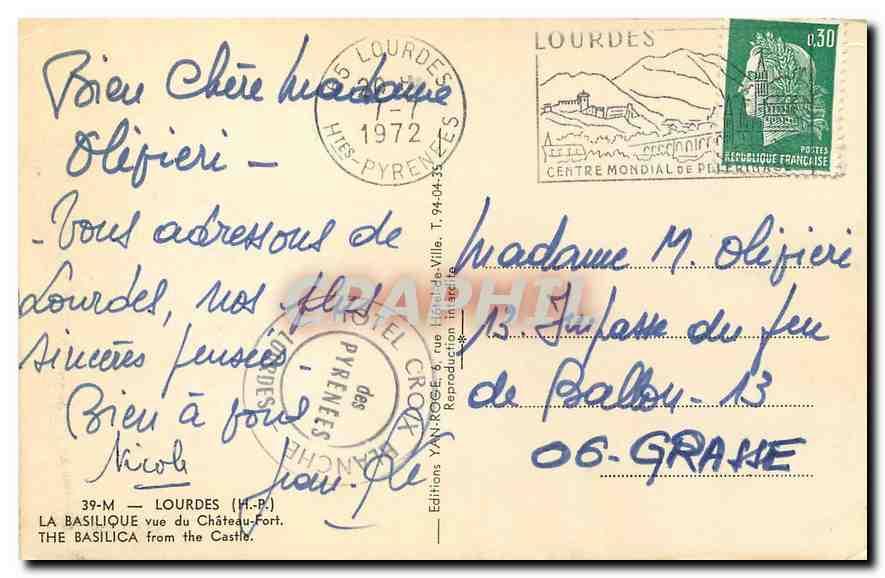 Bien Chère Madame
Olifieri -
- Vous adressons de
Lourdes, nos plus
sincères pensées.
Bien à vous
Nicole
39-M — LOURDES (H.-P.)
LA BASILIQUE vue du Château-Fort.
THE BASILICA from the Castle.
HOTEL CROIX BLANCHE
des
PYRENEES
LOURDES
Editions YAN-ROGE, 6, rue Hôtel-de-Ville. T. 94-04-35
Reproduction interdite
65 LOURDES
1972
HTES-PYRENEES
LOURDES
CENTRE MONDIAL DE PELERINAGE
0,30
POSTES
REPUBLIQUE FRANÇAISE
Madame M. Olifieri
13. Impasse du Jeu
de Ballon - 13
06-GRASSE